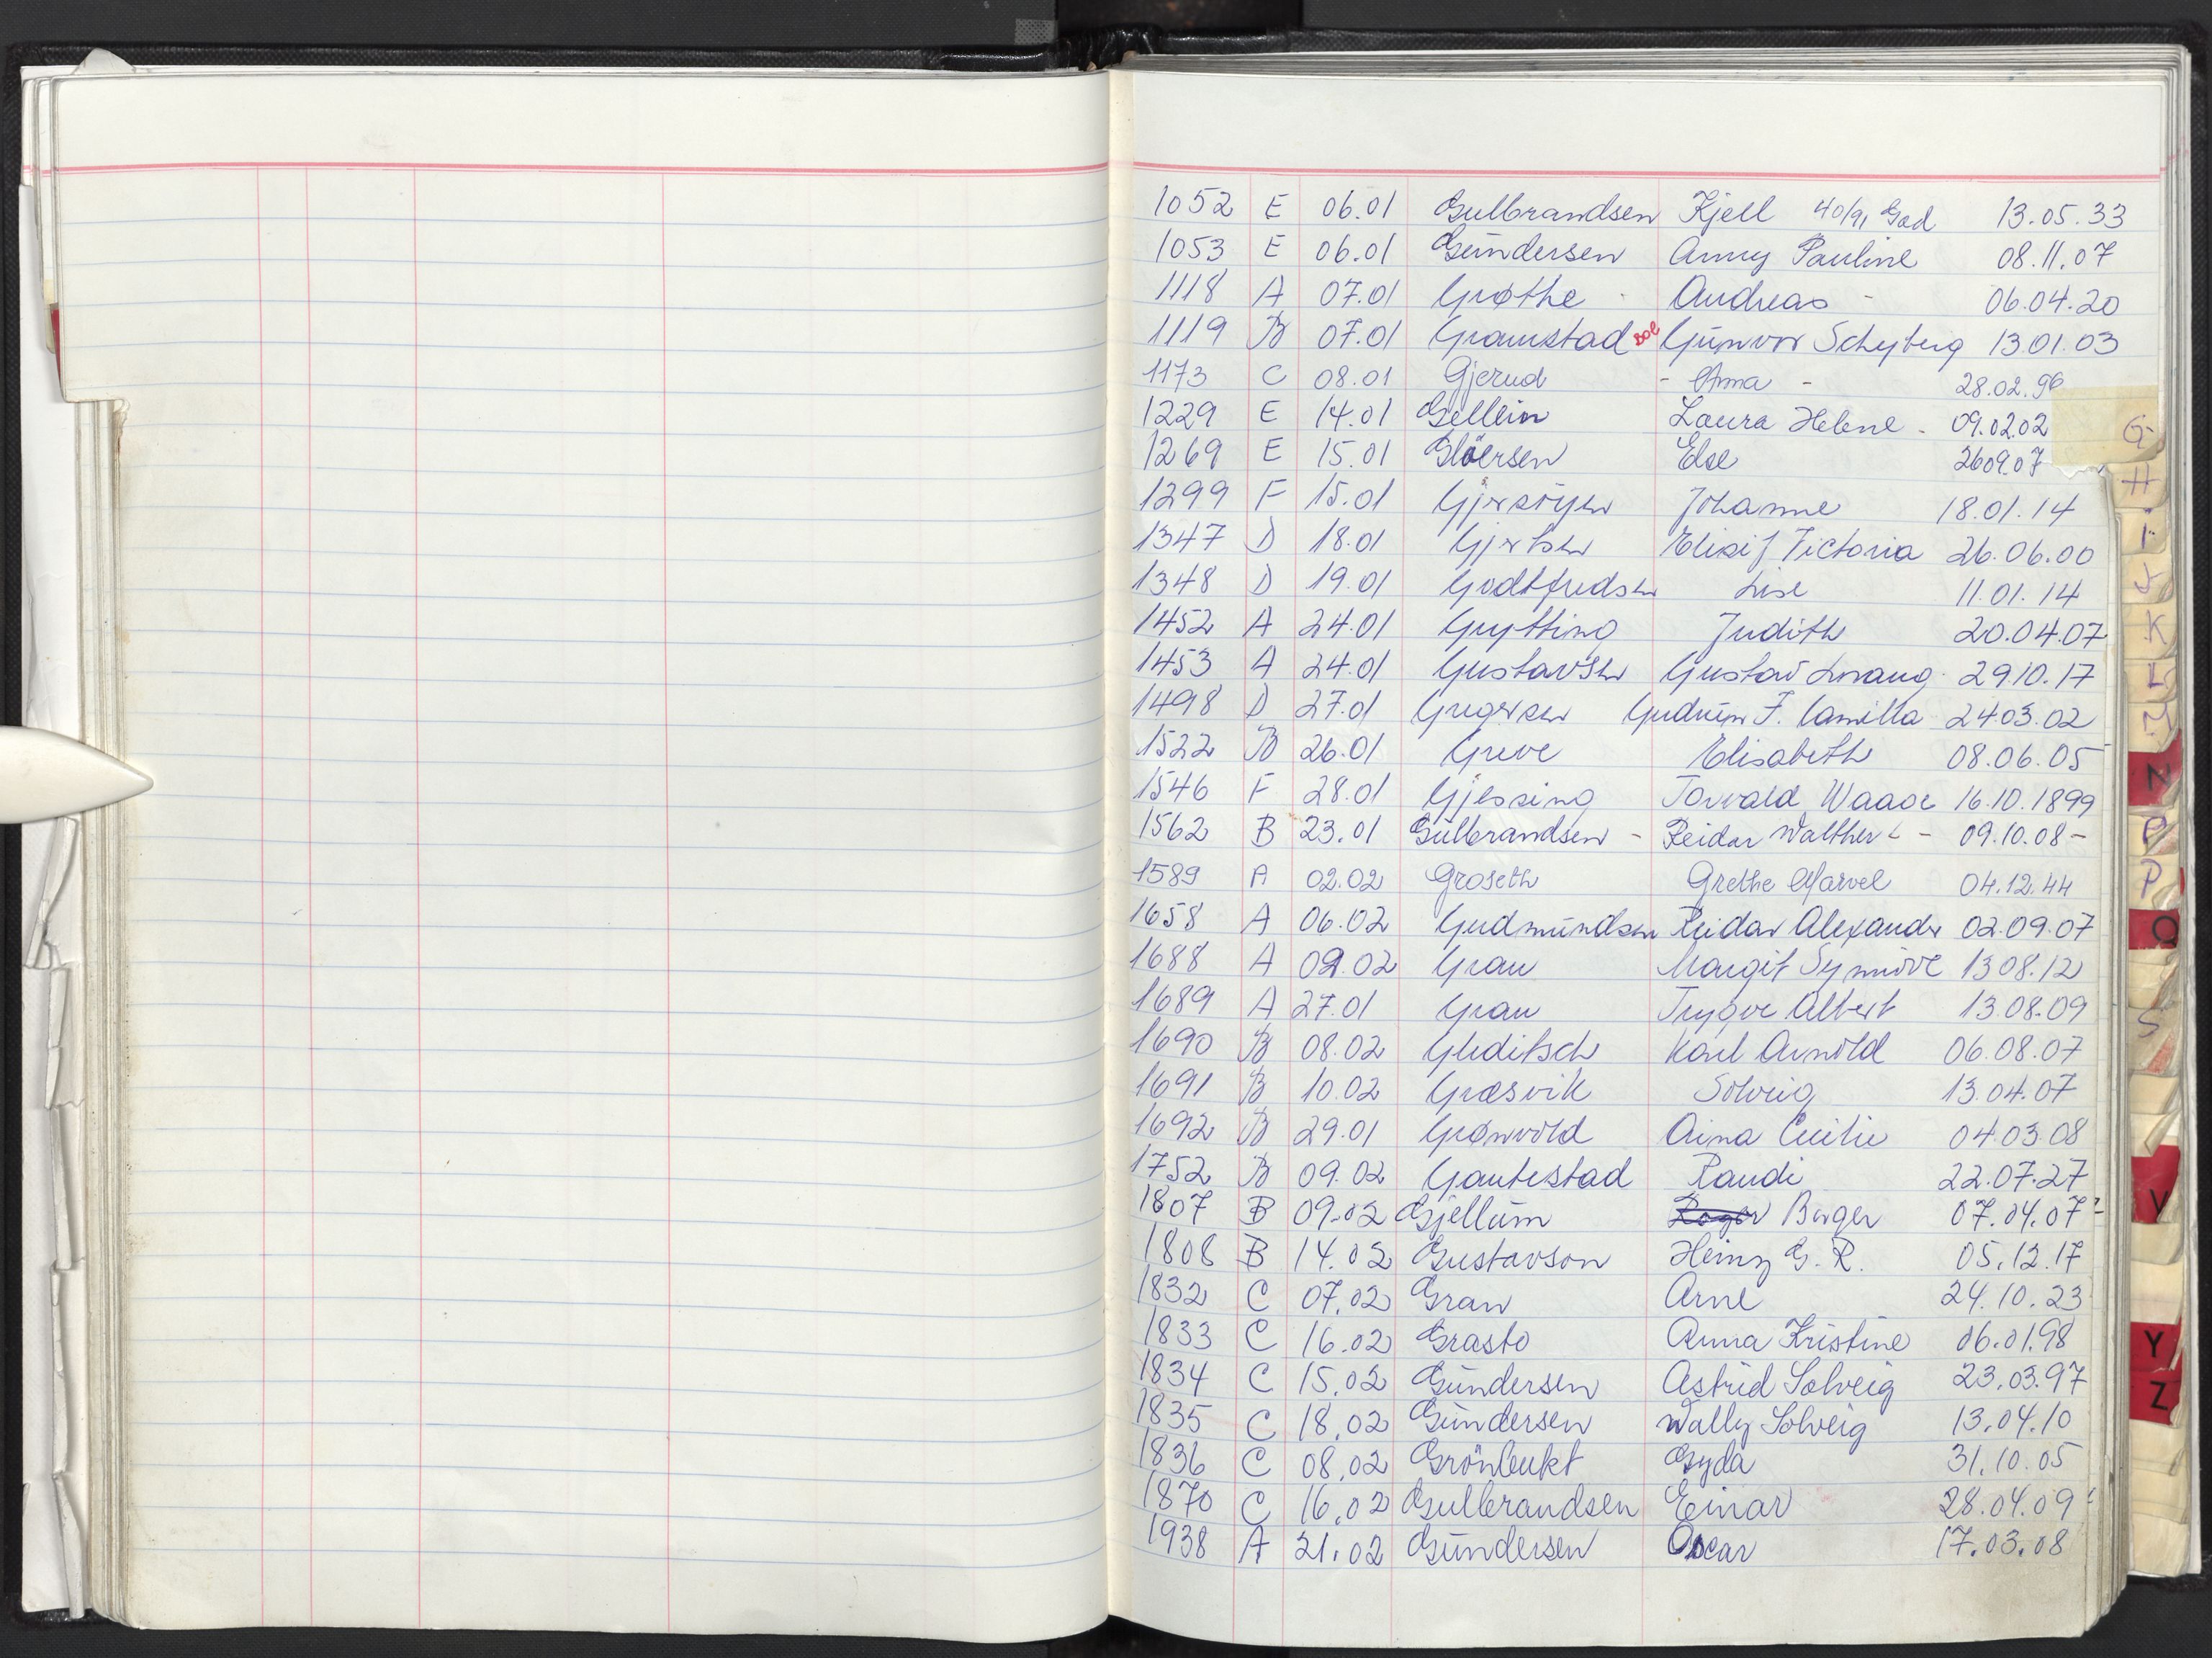 1052 E 06.01 Gulbrandsen Kjell 40/91 Gad 13.05.33
1053 E 06.01 Gundersen Anny Pauline 08.11.07
1118 A 07.01 Grøthe - Andreas - 06.04.20
1119 B 07.01 Gramstad Boe Gunvor Schyberg 13.01.03
1173 C 08.01 Gjerud - Anna - 28.02.96
1229 E 14.01 Gellein Laura Helene - 09.02.02
1269 E 15.01 Glöersen Else 2609.07
1299 F 15.01 Johanne 18.01.14
1347 D 18.01 Gjertsen Elisif Victoria 26.06.00
1348 D 19.01 Godtfredsen Lise 11.01.14
1452 A 24.01 Grytting Judith 20.04.07
1453 A 24.01 Gustavsen Gustav 29.10.17
1498 D 27.01 Gregersen Gudrun F. Camilla 24.03.02
1522 B 26.01 Greve Elisabeth 08.06.05
1546 F 28.01 Gjessing Torvald Waage 16.10.1899
1562 B 23.01 Gulbrandsen - Reidar Walther - 09.10.08-
1589 A 02.02 Groseth Grethe Marvel 04.12.44
1658 A 06.02 Gudmundsen Reidar Alexander 02.09.07
1688 A 09.02 Gran Margit Synnöve 13.08.12
1689 A 27.01 Gran Trygve Albert 13.08.09
1690 B 08.02 Gleditsch Karl Arnold 06.08.07
1691 B 10.02 Græsvik Solveig 13.04.07
1692 B 29.01 Grønvold Aina Cecilie 04.03.08
1752 B 09.02 Gautestad Randi 22.07.27
1807 B 09.02 Gjellum Roger Birger 07.04.07
1808 B 14.02 Gustavson Heinz G. R. 05.12.17
1832 C 07.02 Gran Arne 24.10.23
1833 C 16.02 Grasto Anna Kristine 06.01.98
1834 C 15.02 Gundersen Astrid Solveig 23.03.97
1835 C 18.02 Gundersen Wally Solveig 13.04.10
1836 C 08.02 Grönbukt Gyda 31.10.05
1870 C 16.02 Gulbrandsen Einar 28.04.09
1938 A 21.02 Gundersen Oscar 17.03.08
G
H
I
J
K
L
M
N
O
P
Q
S
V
Y
Z